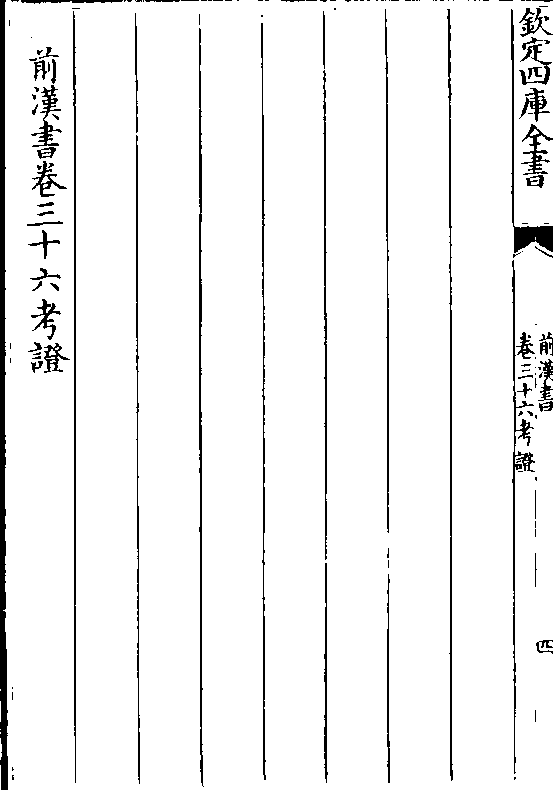 欽定四庫全書
前漢書
卷三十六考證
四
前漢書卷三十六考證